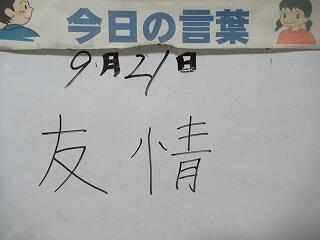 今日の言葉
9月21日
友情